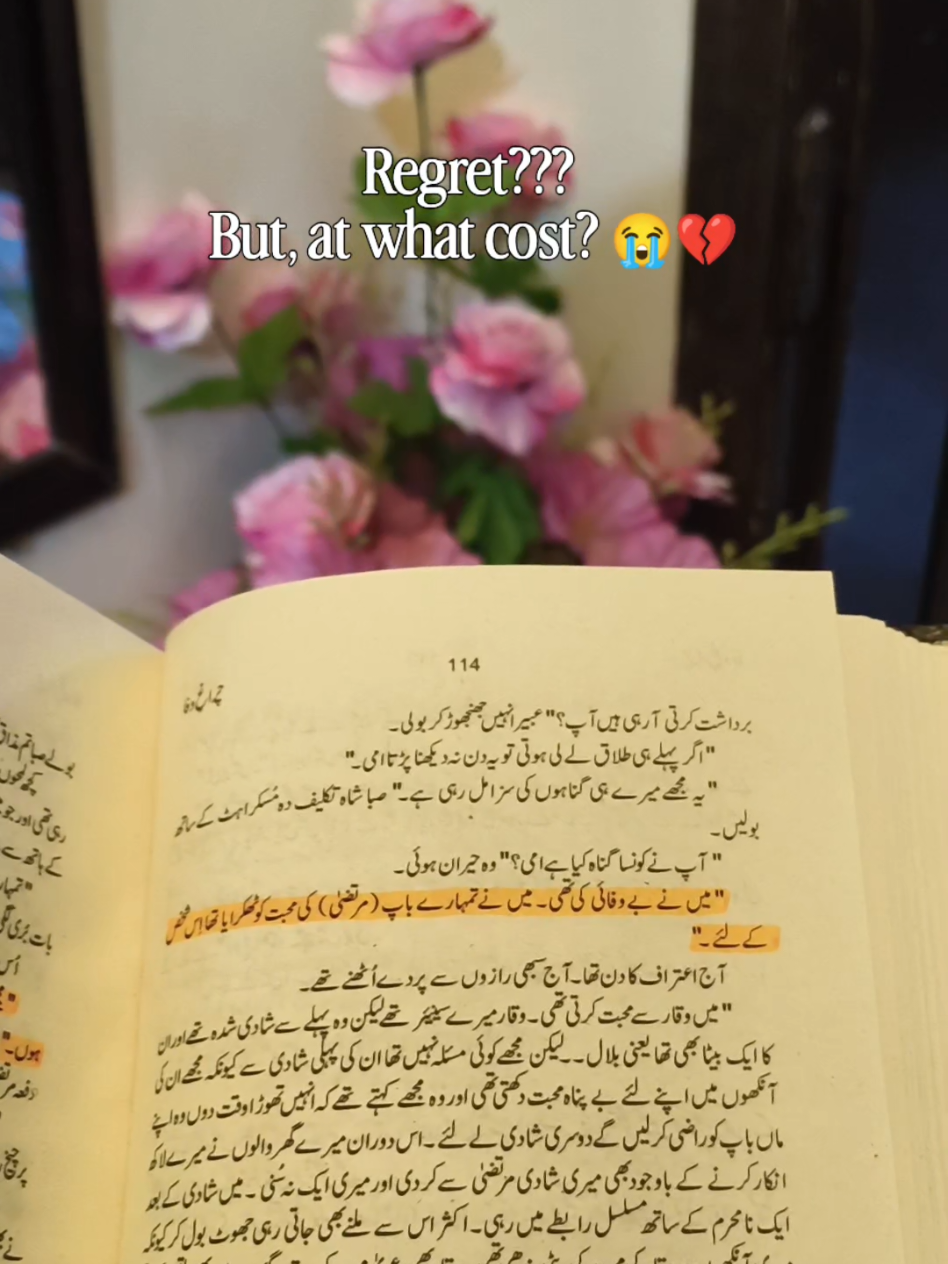 Regret???
But, at what cost? 😭💔
114
چراغِ وفا
برداشت کرتی آ رہی ہیں آپ؟" عبیر انہیں جھنجھوڑ کر بولی۔
"اگر پہلے ہی طلاق لے لی ہوتی تو یہ دن نہ دیکھنا پڑتا امی۔"
"یہ مجھے میرے ہی گناہوں کی سزا مل رہی ہے۔" صبا شاہ تکلیف دہ مُسکراہٹ کے ساتھ
بولیں۔
"آپ نے کونسا گناہ کیا ہے امی؟" وہ حیران ہوئی۔
"میں نے بے وفائی کی تھی۔ میں نے تمہارے باپ (مرتضیٰ) کی محبت کو ٹھکرایا تھا اِس شخص
کے لئے۔"
آج اعتراف کا دن تھا۔ آج سبھی رازوں سے پردے اُٹھنے تھے۔
"میں وقار سے محبت کرتی تھی۔ وقار میرے سینیئر تھے لیکن وہ پہلے سے شادی شدہ تھے اور ان
کا ایک بیٹا بھی تھا یعنی بلال۔۔ لیکن مجھے کوئی مسئلہ نہیں تھا ان کی پہلی شادی سے کیونکہ مجھے ان کی
آنکھوں میں اپنے لئے بے پناہ محبت دکھتی تھی اور وہ مجھے کہتے تھے کہ انہیں تھوڑا وقت دوں وہ اپنے
ماں باپ کو راضی کر لیں گے دوسری شادی کے لئے۔ اس دوران میرے گھر والوں نے میرے لاکھ
انکار کرنے کے باوجود بھی میری شادی مرتضیٰ سے کر دی اور میری ایک نہ سُنی۔ میں شادی کے بعد
ایک نامحرم کے ساتھ مسلسل رابطے میں رہی۔ اکثر اس سے ملنے بھی جاتی رہی جھوٹ بول کر کیونکہ